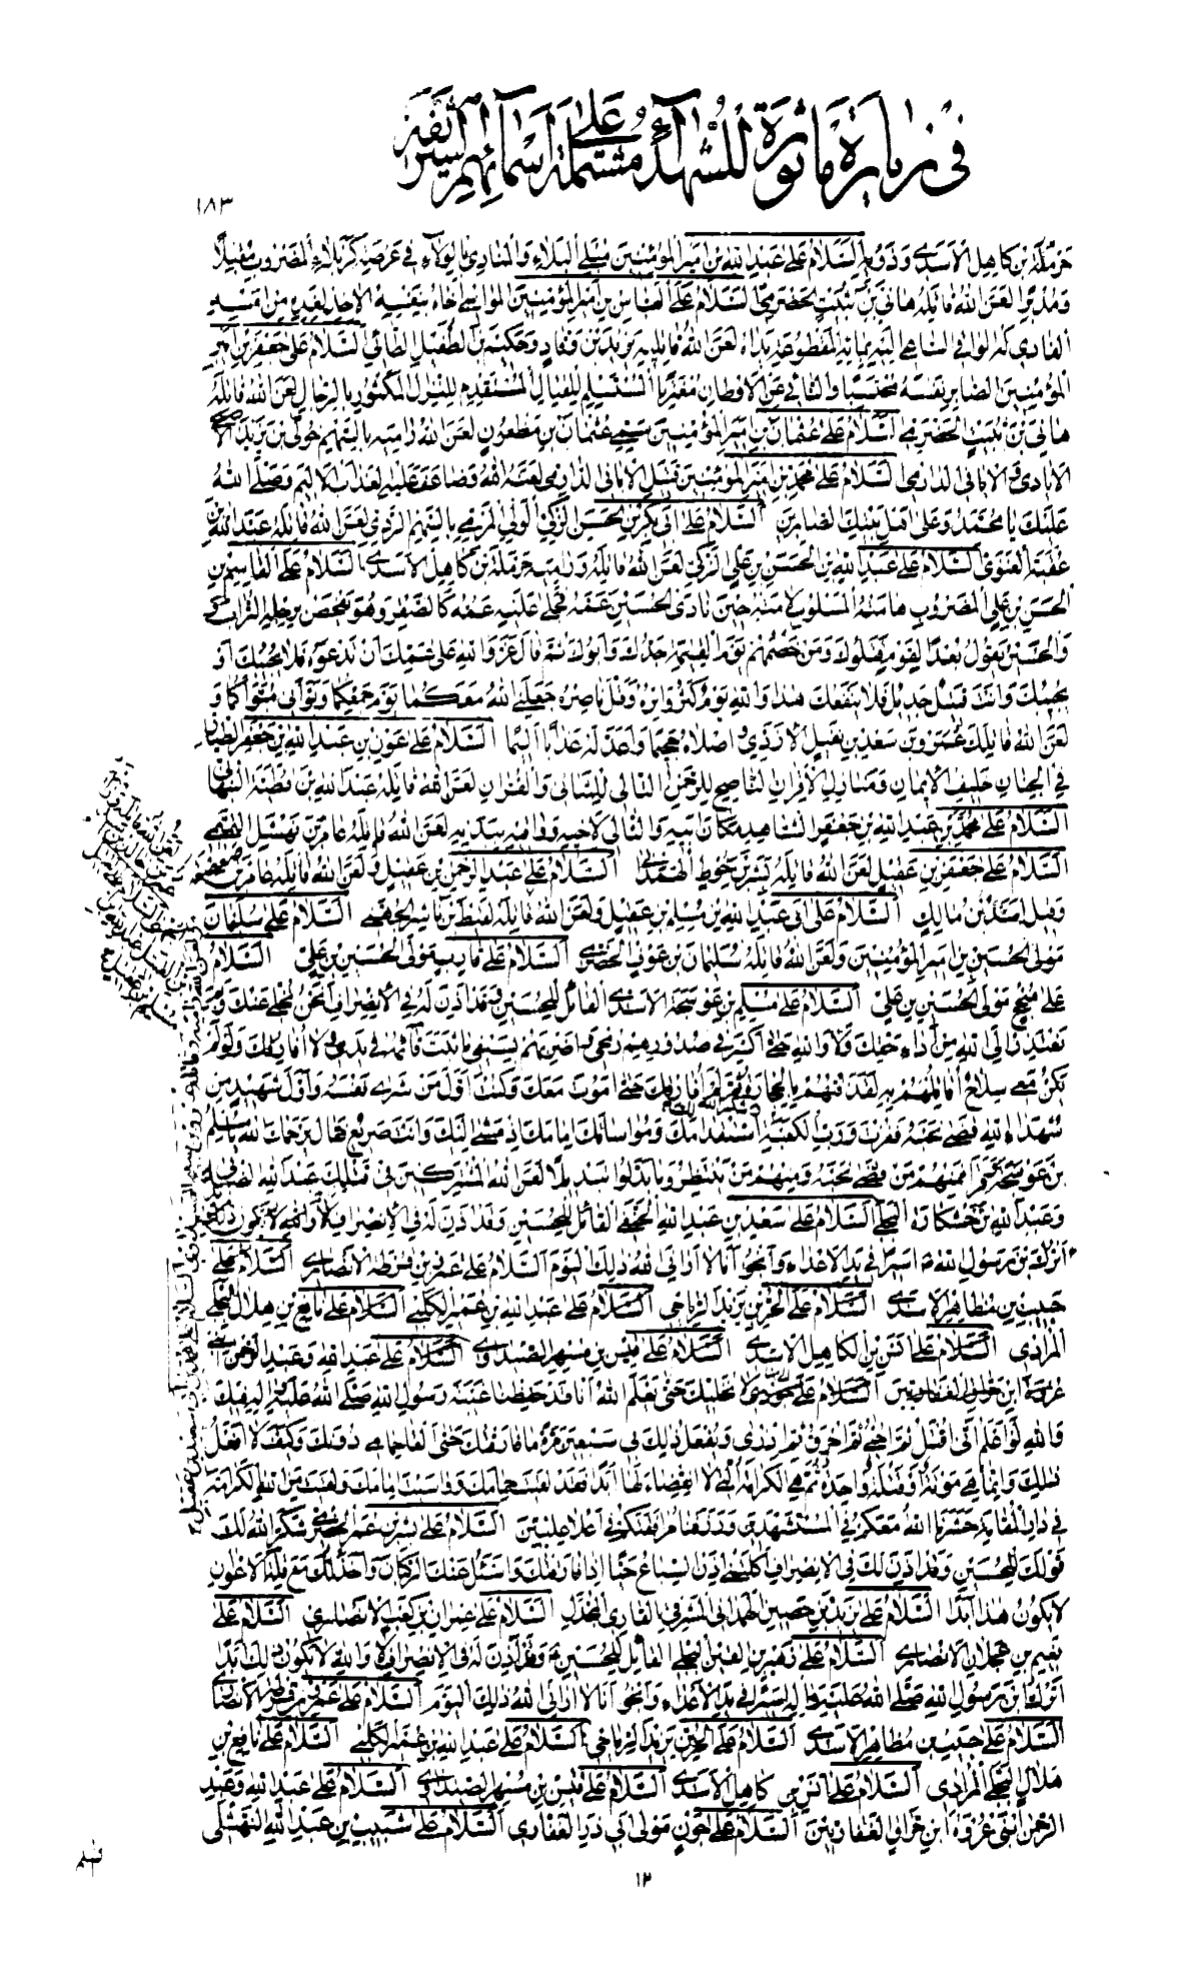 في زيارة ماثورة للشهداء مشتملة على اسمائهم الشريفة
١٨٣
حرملة بن كاهل الاسدي وذويه السلام على عبد الله بن امير المؤمنين مبلى البلاء والمنادي بالولاء في عرصة كربلاء المضروب مقبلا
ومدبرا لعن الله قاتله هاني بن ثبيت الحضرمي السلام على العباس بن امير المؤمنين المواسي اخاه بنفسه الاخذ لغده من امسه
الفادي له الواقي الساعي اليه بمائه المقطوعة يداه لعن الله قاتليه يزيد بن وقاد وحكيم بن الطفيل الطائي السلام على جعفر بن امير
المؤمنين الصابر نفسه محتسبا والنائي عن الاوطان مغتربا المستسلم للقتال المستقدم للنزال المكثور بالرجال لعن الله قاتله
هاني بن ثبيت الحضرمي السلام على عثمان بن امير المؤمنين سمي عثمان بن مظعون لعن الله راميه بالسهم خولي بن يزيد الاصبحي
الايادي الاباني الدارمي السلام على محمد بن امير المؤمنين قتيل الاباني الدارمي لعنه الله وضاعف عليه العذاب الاليم وصلى الله
عليك يا محمد وعلى اهل بيتك الصابرين السلام على ابي بكر بن الحسن الزكي الولي المرمي بالسهم الردي لعن الله قاتله عبد الله بن
عقبة الغنوي السلام على عبد الله بن الحسن بن علي الزكي لعن الله قاتله وراميه حرملة بن كاهل الاسدي السلام على القاسم بن
الحسن بن علي المضروب هامته المسلوب لامته حين نادى الحسين عمه فجلى عليه عمه كالصقر وهو يفحص برجليه التراب
والحسين يقول بعدا لقوم قتلوك ومن خصمهم يوم القيمة جدك وابوك ثم قال عز والله على عمك ان تدعوه فلا يجيبك او
يجيبك وانت قتيل جديل فلا ينفعك هذا والله يوم كثر واتره وقل ناصره جعلني الله معكما يوم جمعكما وبوأني مبوأكما و
لعن الله قاتلك عمرو بن سعد بن نفيل الازدي واصلاه جحيما واعد له عذابا اليما السلام على عون بن عبد الله بن جعفر الطيار
في الجنان حليف الايمان ومنازل الاقران الناصح للرحمن التالي للمثاني والقران لعن الله قاتله عبد الله بن قطبة النبهاني
السلام على محمد بن عبد الله بن جعفر الشاهد مكان ابيه والتالي لاخيه وواقيه ببدنه لعن الله قاتله عامر بن نهشل التميمي
السلام على جعفر بن عقيل لعن الله قاتله بشر بن خوط الهمداني السلام على عبد الرحمن بن عقيل ولعن الله قاتله عامر بن
وقيل اسد بن مالك السلام على ابي عبد الله بن مسلم بن عقيل ولعن الله قاتله لقيط بن ناشر الجهني السلام على سليمان
مولى الحسين بن امير المؤمنين ولعن الله قاتله سليمان بن عوف الحضرمي السلام على قارب مولى الحسين بن علي السلام
على منجح مولى الحسين بن علي السلام على مسلم بن عوسجة الاسدي القائل للحسين وقد اذن له في الانصراف انحن نخلي عنك وبم
نعتذر الى الله من اداء حقك ولا والله حتى اكسر في صدورهم رمحي واضربهم بسيفي ما ثبت قائمه في يدي ولا افارقك ولو لم
يكن معي سلاح اقاتلهم به لقذفتهم بالحجارة ثم لم افارقك حتى اموت معك وكنت اول من شرى نفسه واول شهيد من
شهداء الله قضى نحبه ففزت ورب الكعبة شكر الله لك استقدامك ومواساتك امامك اذ مشى اليك وانت صريع فقال يرحمك الله يا مسلم
بن عوسجة وقرء فمنهم من قضى نحبه ومنهم من ينتظر وما بدلوا تبديلا لعن الله المشتركين في قتلك عبد الله الضبابي
وعبد الله بن خشكارة البجلي السلام على سعيد بن عبد الله الحنفي القائل للحسين وقد اذن له في الانصراف لا والله لا يكون ذلك
اترك بن رسول الله اسيرا في يد الاعداء وانجو انا لا اراني الله ذلك اليوم السلام على عمر بن قرظة الانصاري السلام على
حبيب بن مظاهر الاسدي السلام على الحر بن يزيد الرياحي السلام على عبد الله بن عمير الكلبي السلام على نافع بن هلال البجلي
المرادي السلام على انس بن الكاهل الاسدي السلام على قيس بن مسهر الصيداوي السلام على عبد الله وعبد الرحمن ابني
عروة ابن حراق الغفاريين السلام على جون لا نخليك حتى نعلم الله انا قد حفظنا غيبة رسول الله صلى الله عليه واله فيك
والله لو اعلم اني اقتل ثم احيى ثم احرق ثم اذرى ويفعل ذلك بي سبعين مرة ما فارقتك حتى القى حمامي دونك وكيف لا افعل
ذلك وانما هي موتة او قتلة واحدة ثم هي الكرامة التي لا انقضاء لها ابدا فقد لقيت حمامك وواسيت امامك ولقيت من الله الكرامة
في دار المقامة حشرنا الله معكم في المستشهدين ورزقنا مرافقتكم في اعلا عليين السلام على بشر بن عمر الحضرمي شكر الله لك
قولك للحسين وقد اذن لك في الانصراف اكلتني اذن السباع حيا اذا فارقتك واسئل عنك الركبان واخذلك مع قلة الاعوان
لا يكون هذا ابدا السلام على يزيد بن حصين الهمداني المشرقي القاري المجدل السلام على عمران بن كعب الانصاري السلام على
نعيم بن عجلان الانصاري السلام على زهير بن القين البجلي القائل للحسين وقد اذن له في الانصراف لا والله لا يكون ذلك ابدا
اترك ابن رسول الله صلى الله عليه واله اسيرا في يد الاعداء وانجو انا لا اراني الله ذلك اليوم السلام على عمر بن قرظة الانصاري
السلام على حبيب بن مظاهر الاسدي السلام على الحر بن يزيد الرياحي السلام على عبد الله بن عمير الكلبي السلام على نافع بن
هلال البجلي المرادي السلام على انس بن كاهل الاسدي السلام على قيس بن مسهر الصيداوي السلام على عبد الله وعبد
الرحمن ابني عروة ابن حراق الغفاريين السلام على جون مولى ابي ذر الغفاري السلام على شبيب بن عبد الله النهشلي
١٢